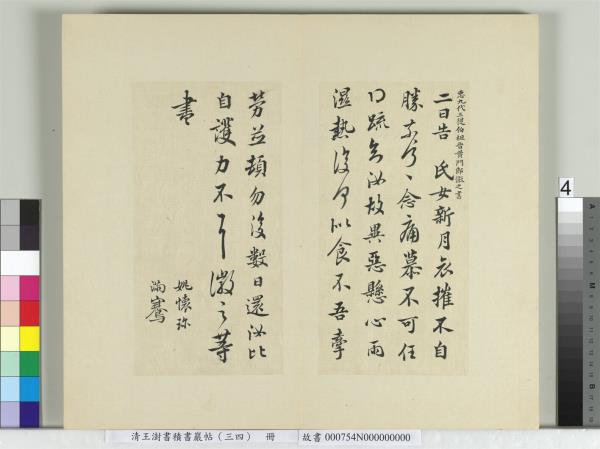 九代三從伯祖晉黃門郎徽之書
二日告 氏女新月哀摧不自
勝奈何〻念痛慕不可任
得疏知汝故異惡懸心雨
濕熱復何似食不吾牽
勞並頓勿復數日還汝比
自護力不具徽之等
書
姚懷珍
滿騫
清王澍書積書巖帖(三四) 冊
故書 000754N000000000
4